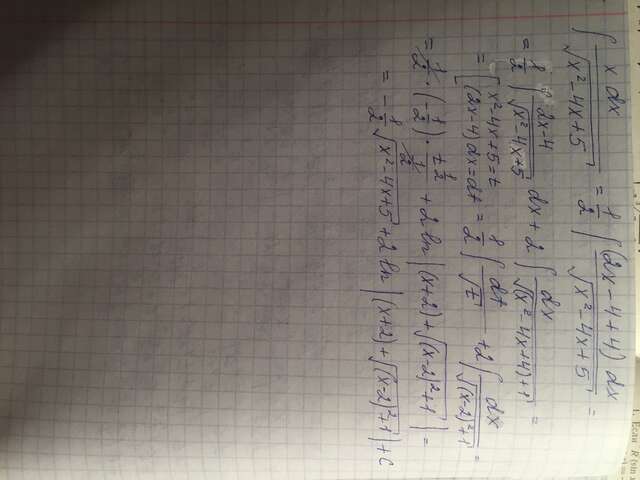 ∫ x dx / √(x² - 4x + 5) = 1/2 ∫ (2x - 4 + 4) dx / √(x² - 4x + 5) =
= 1/2 ∫ (2x - 4) / √(x² - 4x + 5) dx + 2 ∫ dx / √((x² - 4x + 4) + 1) =
= [x² - 4x + 5 = t
(2x - 4) dx = dt = 1/2 ∫ dt / √t + 2 ∫ dx / √((x - 2)² + 1) =
= 1/2 · (-1/2) · t^(1/2) / (1/2) + 2 ln |(x + 2) + √((x - 2)² + 1)| =
= -1/2 √(x² - 4x + 5) + 2 ln |(x + 2) + √((x - 2)² + 1)| + C
1. Если R (sin